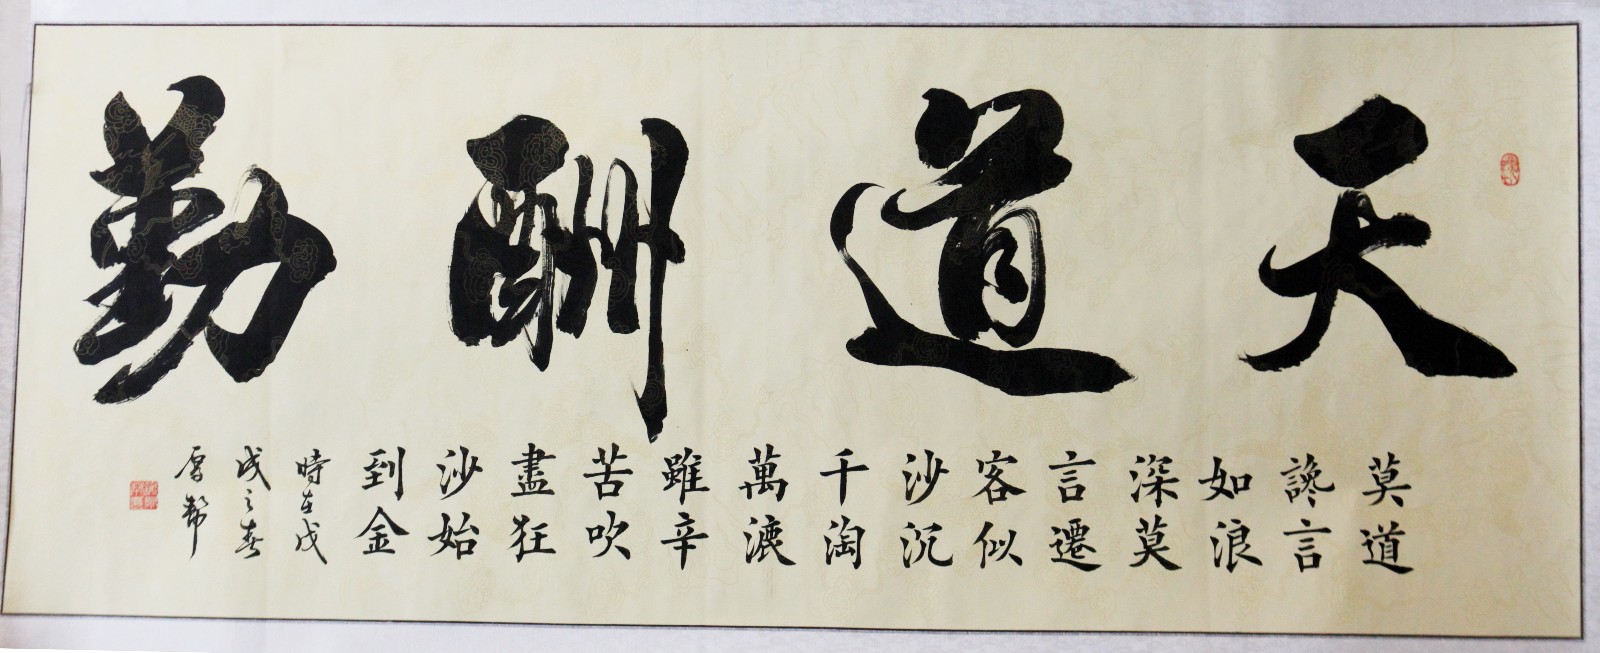 天道酬勤
莫道
讒言
如浪
深莫
言遷
客似
沙沉
千淘
萬漉
雖辛
苦吹
盡狂
沙始
到金
時在戊
戌之春